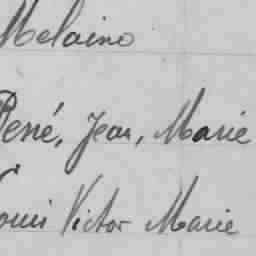 Melaine
René, Jean, Marie
Louis Victor Marie